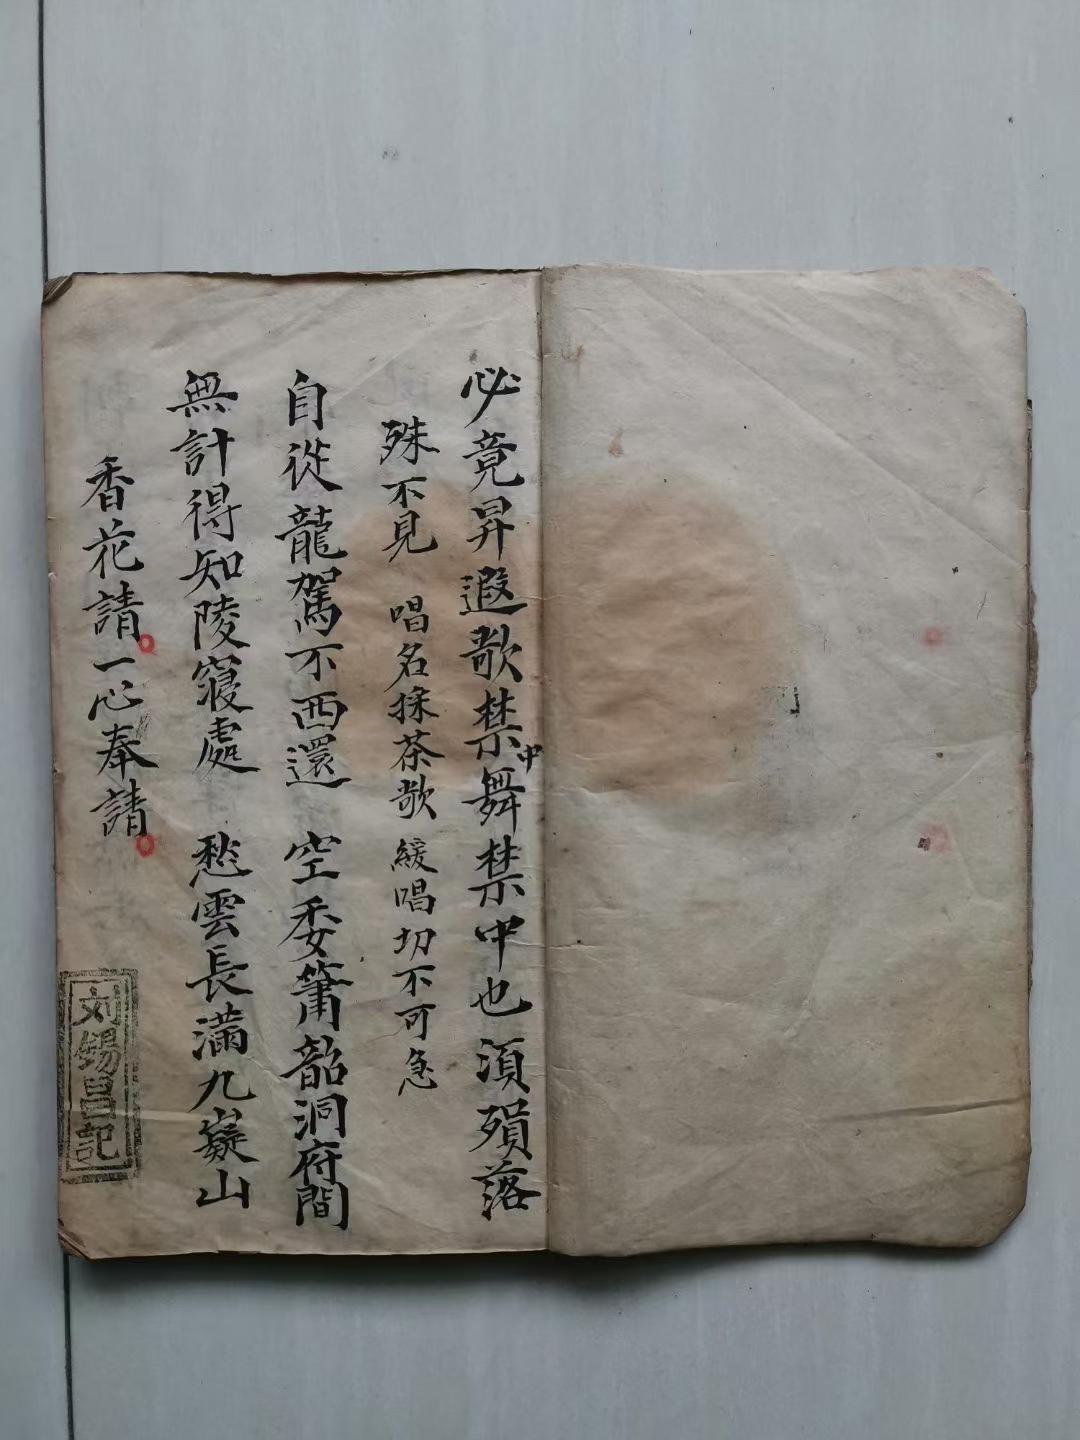 必竟昇遐歌禁中舞禁中也須殞落
殊不見 唱名採茶歌 緩唱切不可急
自從龍駕不西還 空委簫韶洞府間
無計得知陵寢處 愁雲長滿九嶷山
香花請一心奉請
刘锡昌記